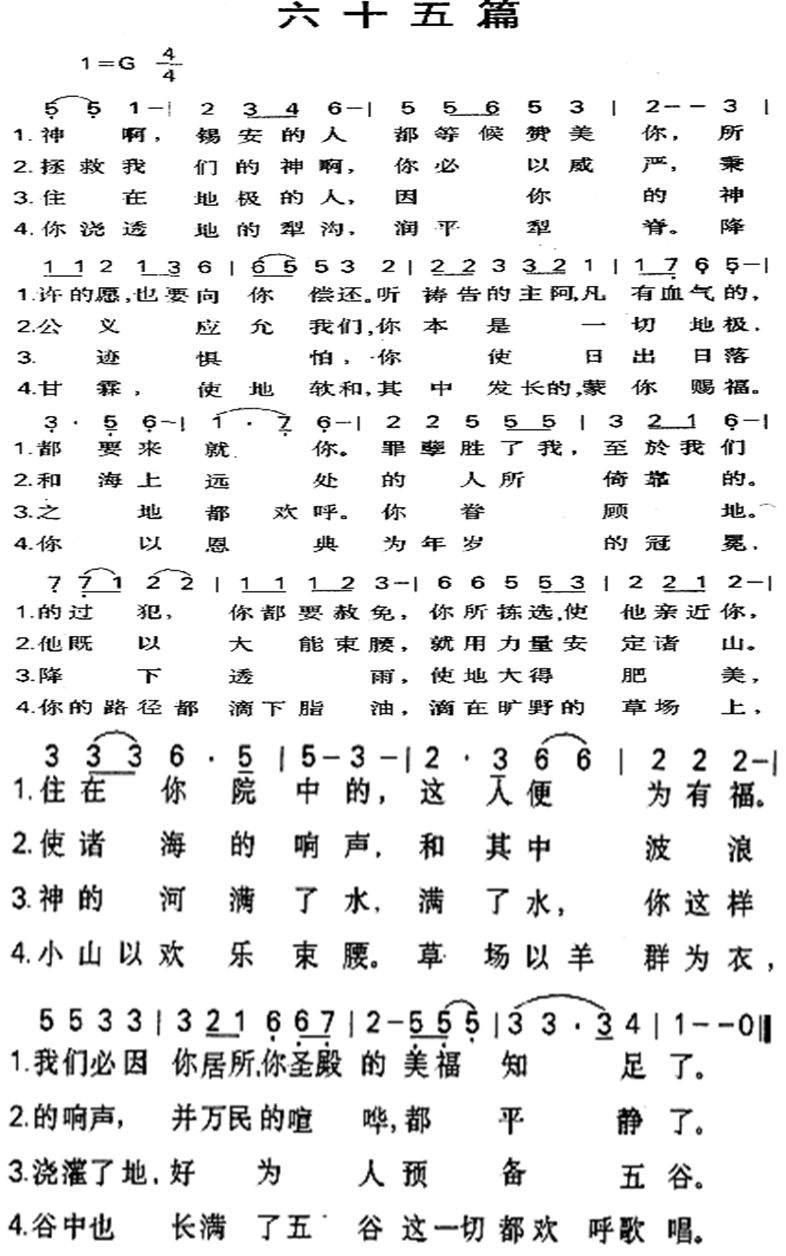 六十五篇
1=G 4/4
5 5 1-| 2 3 4 6-| 5 5 6 5 3 | 2-- 3 |
1.神啊，锡安的人都等候赞美你，所
2.拯救我们的神啊，你必以威严，秉
3.住在地极的人，因你的神
4.你浇透地的犁沟，润平犁脊。降
1 1 2 1 3 6 | 6 5 5 3 2 | 2 2 3 3 2 1 | 1 7 6 5-|
1.许的愿，也要向你偿还。听祷告的主阿，凡有血气的，
2.公义应允我们，你本是一切地极．
3.迹惧怕，你使日出日落
4.甘霖，使地软和，其中发长的，蒙你赐福。
3·5 6-| 1·7 6-| 2 2 5 5 5 | 3 2 1 6-|
1.都要来就你。罪孽胜了我，至於我们
2.和海上远处的人所倚靠的。
3.之地都欢呼。你眷顾地。
4.你以恩典为年岁的冠冕．
7 7 1 2 2 | 1 1 1 2 3-| 6 6 5 5 3 | 2 2 1 2-|
1.的过犯，你都要赦免，你所拣选，使他亲近你，
2.他既以大能束腰，就用力量安定诸山。
3.降下透雨，使地大得肥美，
4.你的路径都滴下脂油，滴在旷野的草场上，
3 3 3 6·5 | 5-3-| 2·3 6 6 | 2 2 2-|
1.住在你院中的，这人便为有福。
2.使诸海的响声．和其中波浪
3.神的河满了水．满了水，你这样
4.小山以欢乐束腰。草场以羊群为衣，
5 5 3 3 | 3 2 1 6 6 7 | 2-5 5 5 | 3 3·3 4 | 1--0‖
1.我们必因你居所，你圣殿的美福知足了。
2.的响声，并万民的喧哗，都平静了。
3.浇灌了地，好为人预备五谷。
4.谷中也长满了五谷这一切都欢呼歌唱。